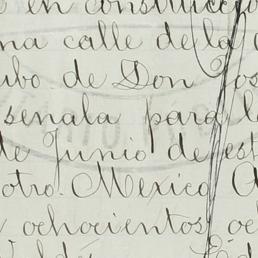 en construcció
na calle de la
ubo de Don Jos
senala para l
de Junio de est
otro. Mexico A
ochocientos oc